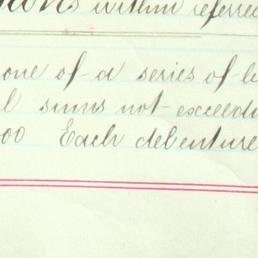 within referred
one of a series of
sums not exceeding
00 Each debenture